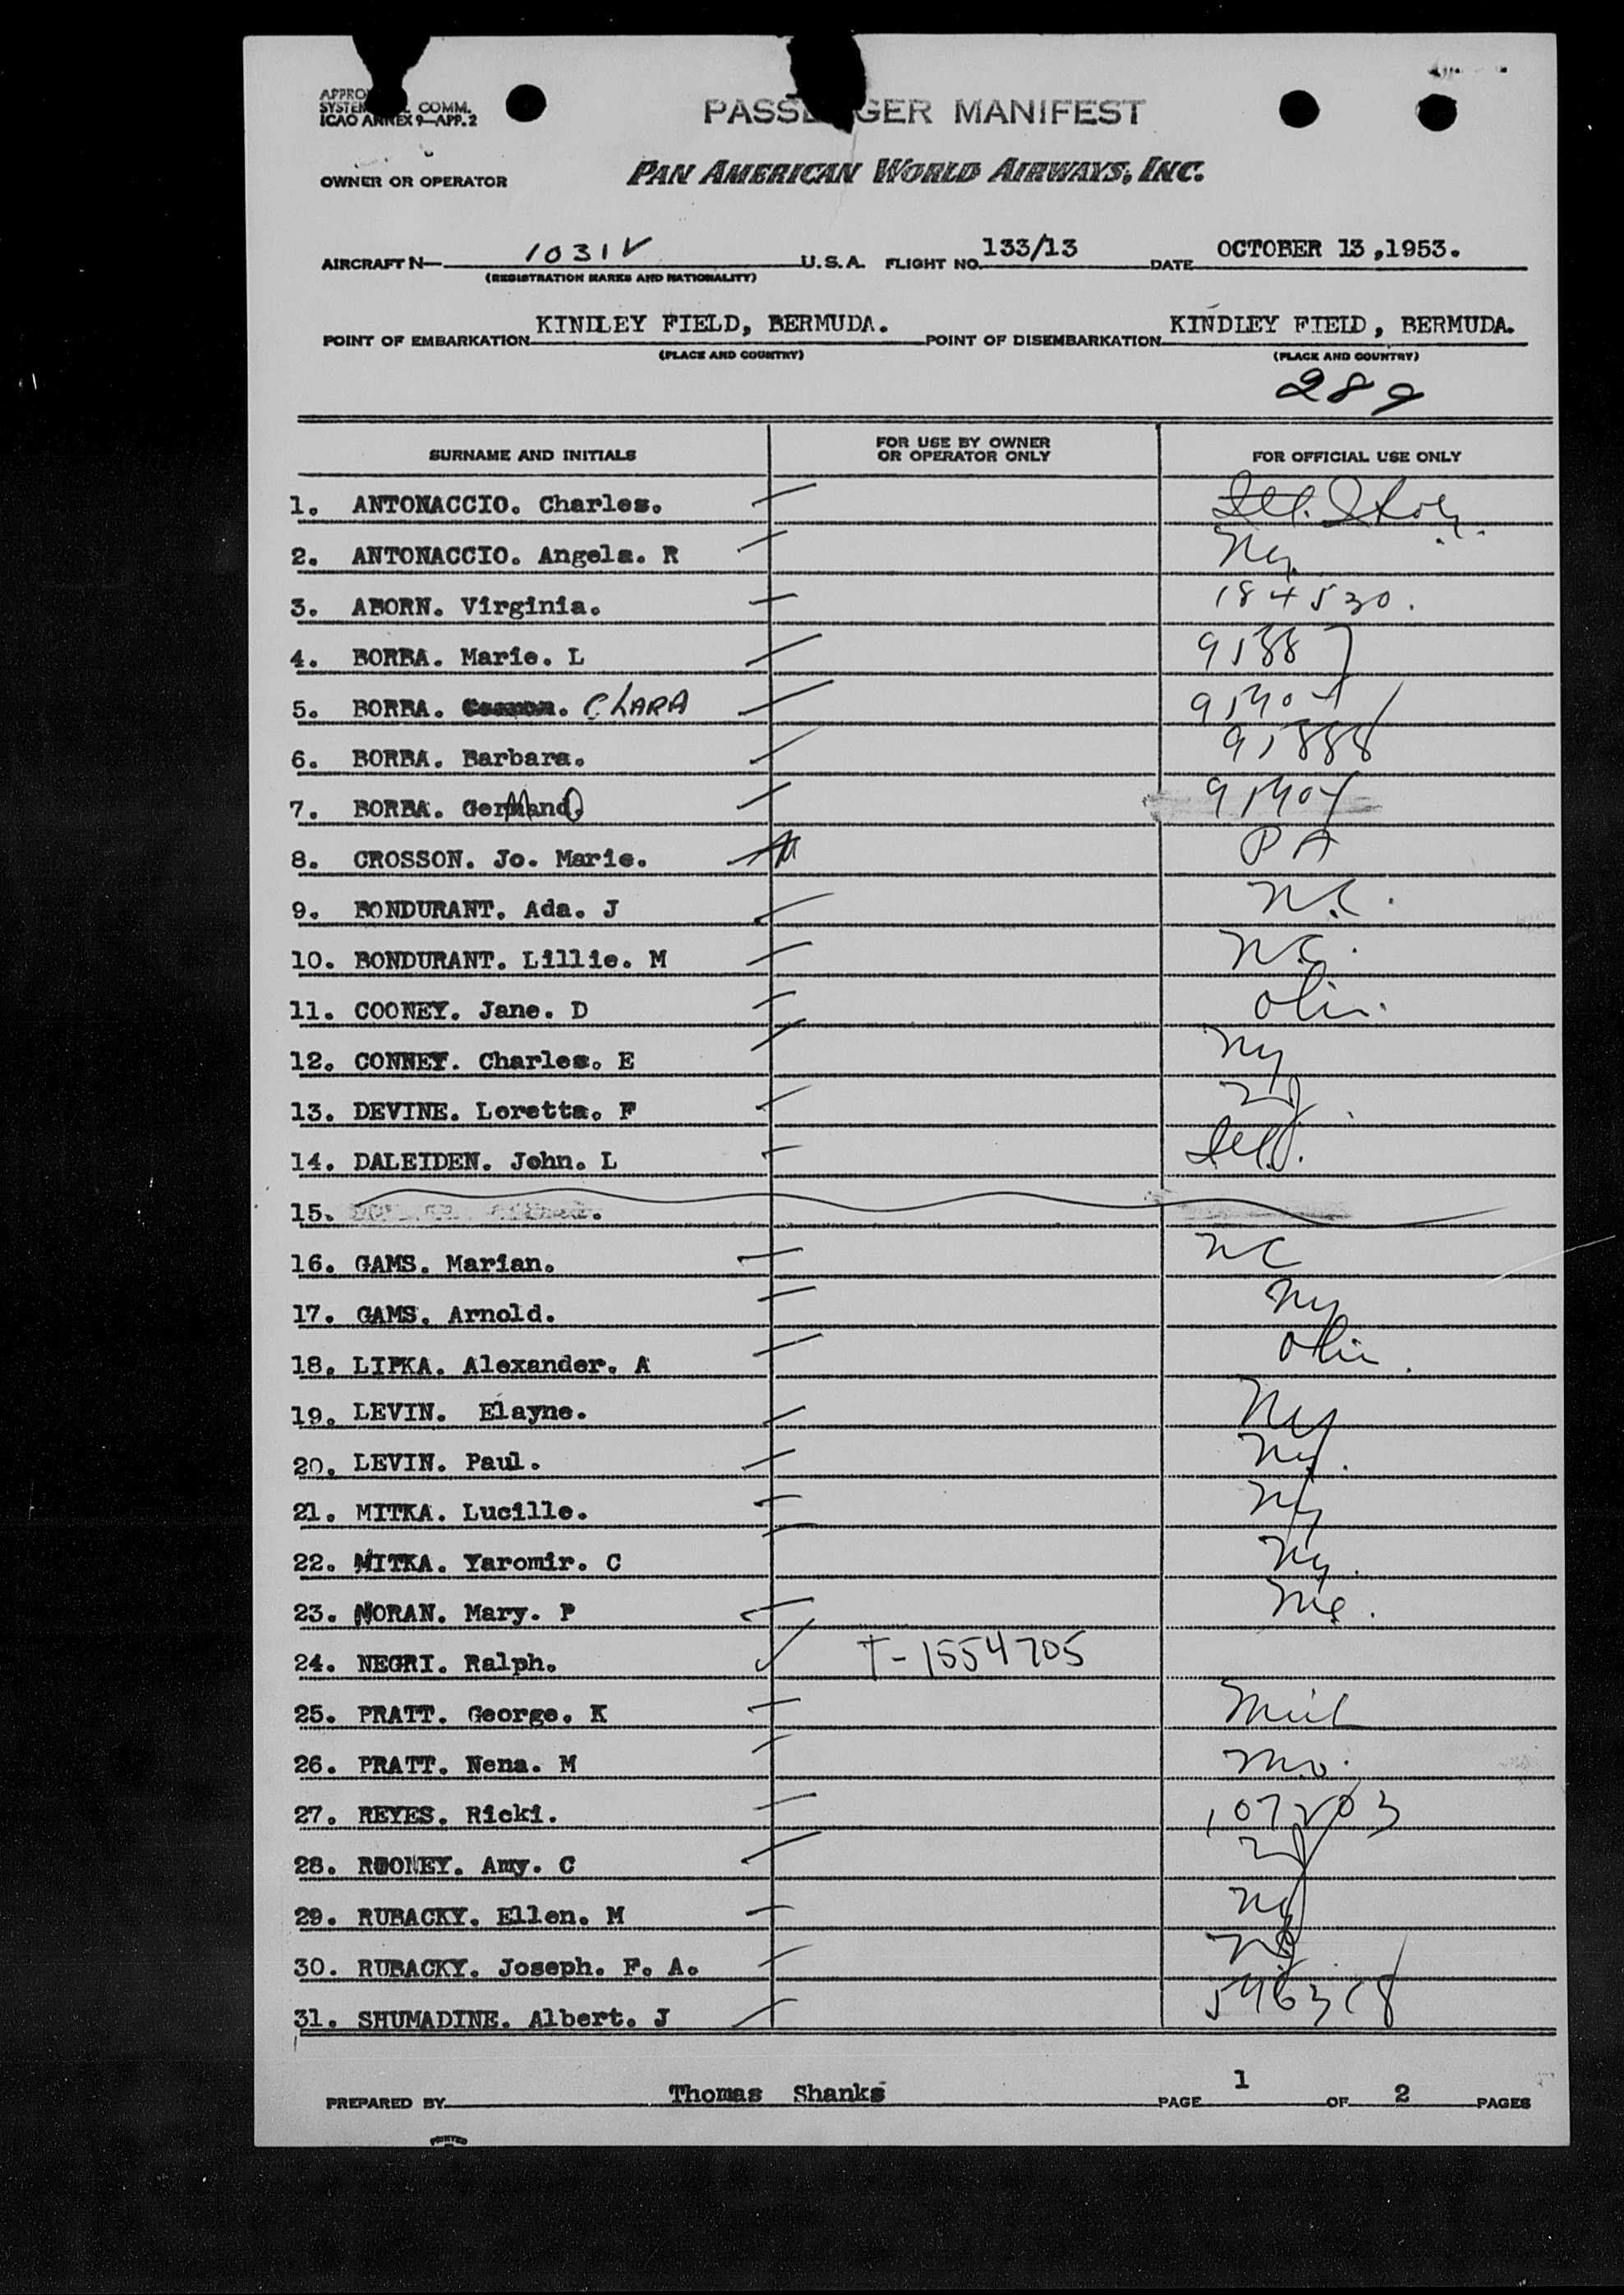 APPRO
SYSTEM COMM.
ICAO ANNEX 9—APP. 2
PASSENGER MANIFEST
OWNER OR OPERATOR PAN AMERICAN WORLD AIRWAYS, INC.
AIRCRAFT N— 1031V U.S.A. FLIGHT NO. 133/13 DATE OCTOBER 13 ,1953.
(REGISTRATION MARKS AND NATIONALITY)
POINT OF EMBARKATION KINDLEY FIELD, BERMUDA. POINT OF DISEMBARKATION KINDLEY FIELD, BERMUDA.
(PLACE AND COUNTRY) (PLACE AND COUNTRY)
289
SURNAME AND INITIALS FOR USE BY OWNER OR OPERATOR ONLY FOR OFFICIAL USE ONLY
1. ANTONACCIO. Charles. Ill.
2. ANTONACCIO. Angela. R Ny.
3. ABORN. Virginia. 184530.
4. BORBA. Marie. L
5. BORBA. CLARA
6. BORBA. Barbara. 91888
7. BORBA. GerMandO
8. CROSSON. Jo. Marie. PA
9. BONDURANT. Ada. J N.C.
10. BONDURANT. Lillie. M N.C.
11. COONEY. Jane. D
12. CONNEY. Charles. E Ny
13. DEVINE. Loretta. F NJ.
14. DALEIDEN. John. L Ill.
15.
16. GAMS. Marian. NC
17. GAMS. Arnold. Ny
18. LIPKA. Alexander. A
19. LEVIN. Elayne. Ny
20. LEVIN. Paul. Ny.
21. MITKA. Lucille. Ny
22. MITKA. Yaromir. C Ny.
23. NORAN. Mary. P Me.
24. NEGRI. Ralph. T-1554705
25. PRATT. George. K
26. PRATT. Nena. M Mo.
27. REYES. Ricki. 107203
28. ROONEY. Amy. C NJ
29. RUBACKY. Ellen. M NJ
30. RUBACKY. Joseph. F. A. NJ
31. SHUMADINE. Albert. J
PREPARED BY Thomas Shanks PAGE 1 OF 2 PAGES
PRINTED